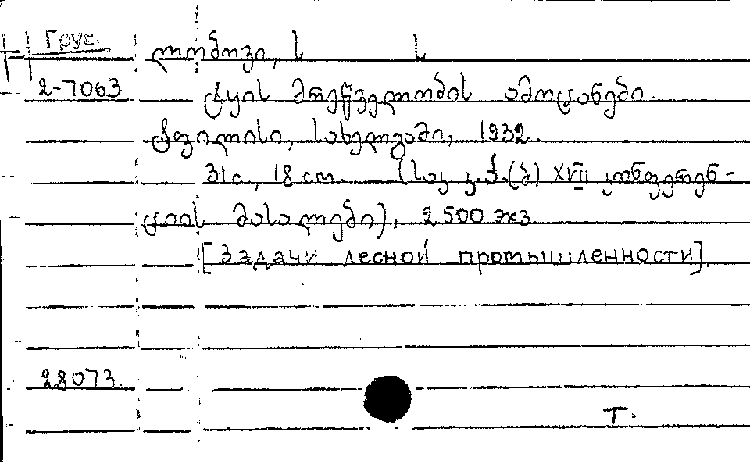 Груз.
ლობოვი, ს
2-7063 ტყის მრეწველობის ამოცანები.
ტფილისი, სახელგამი, 1932.
31 с., 18 см. (საკ. კ.პ.(ბ) XVII კონფერენ-
ციის მასალები), 2500 экз.
[Задачи лесной промышленности].
28073.
Т.